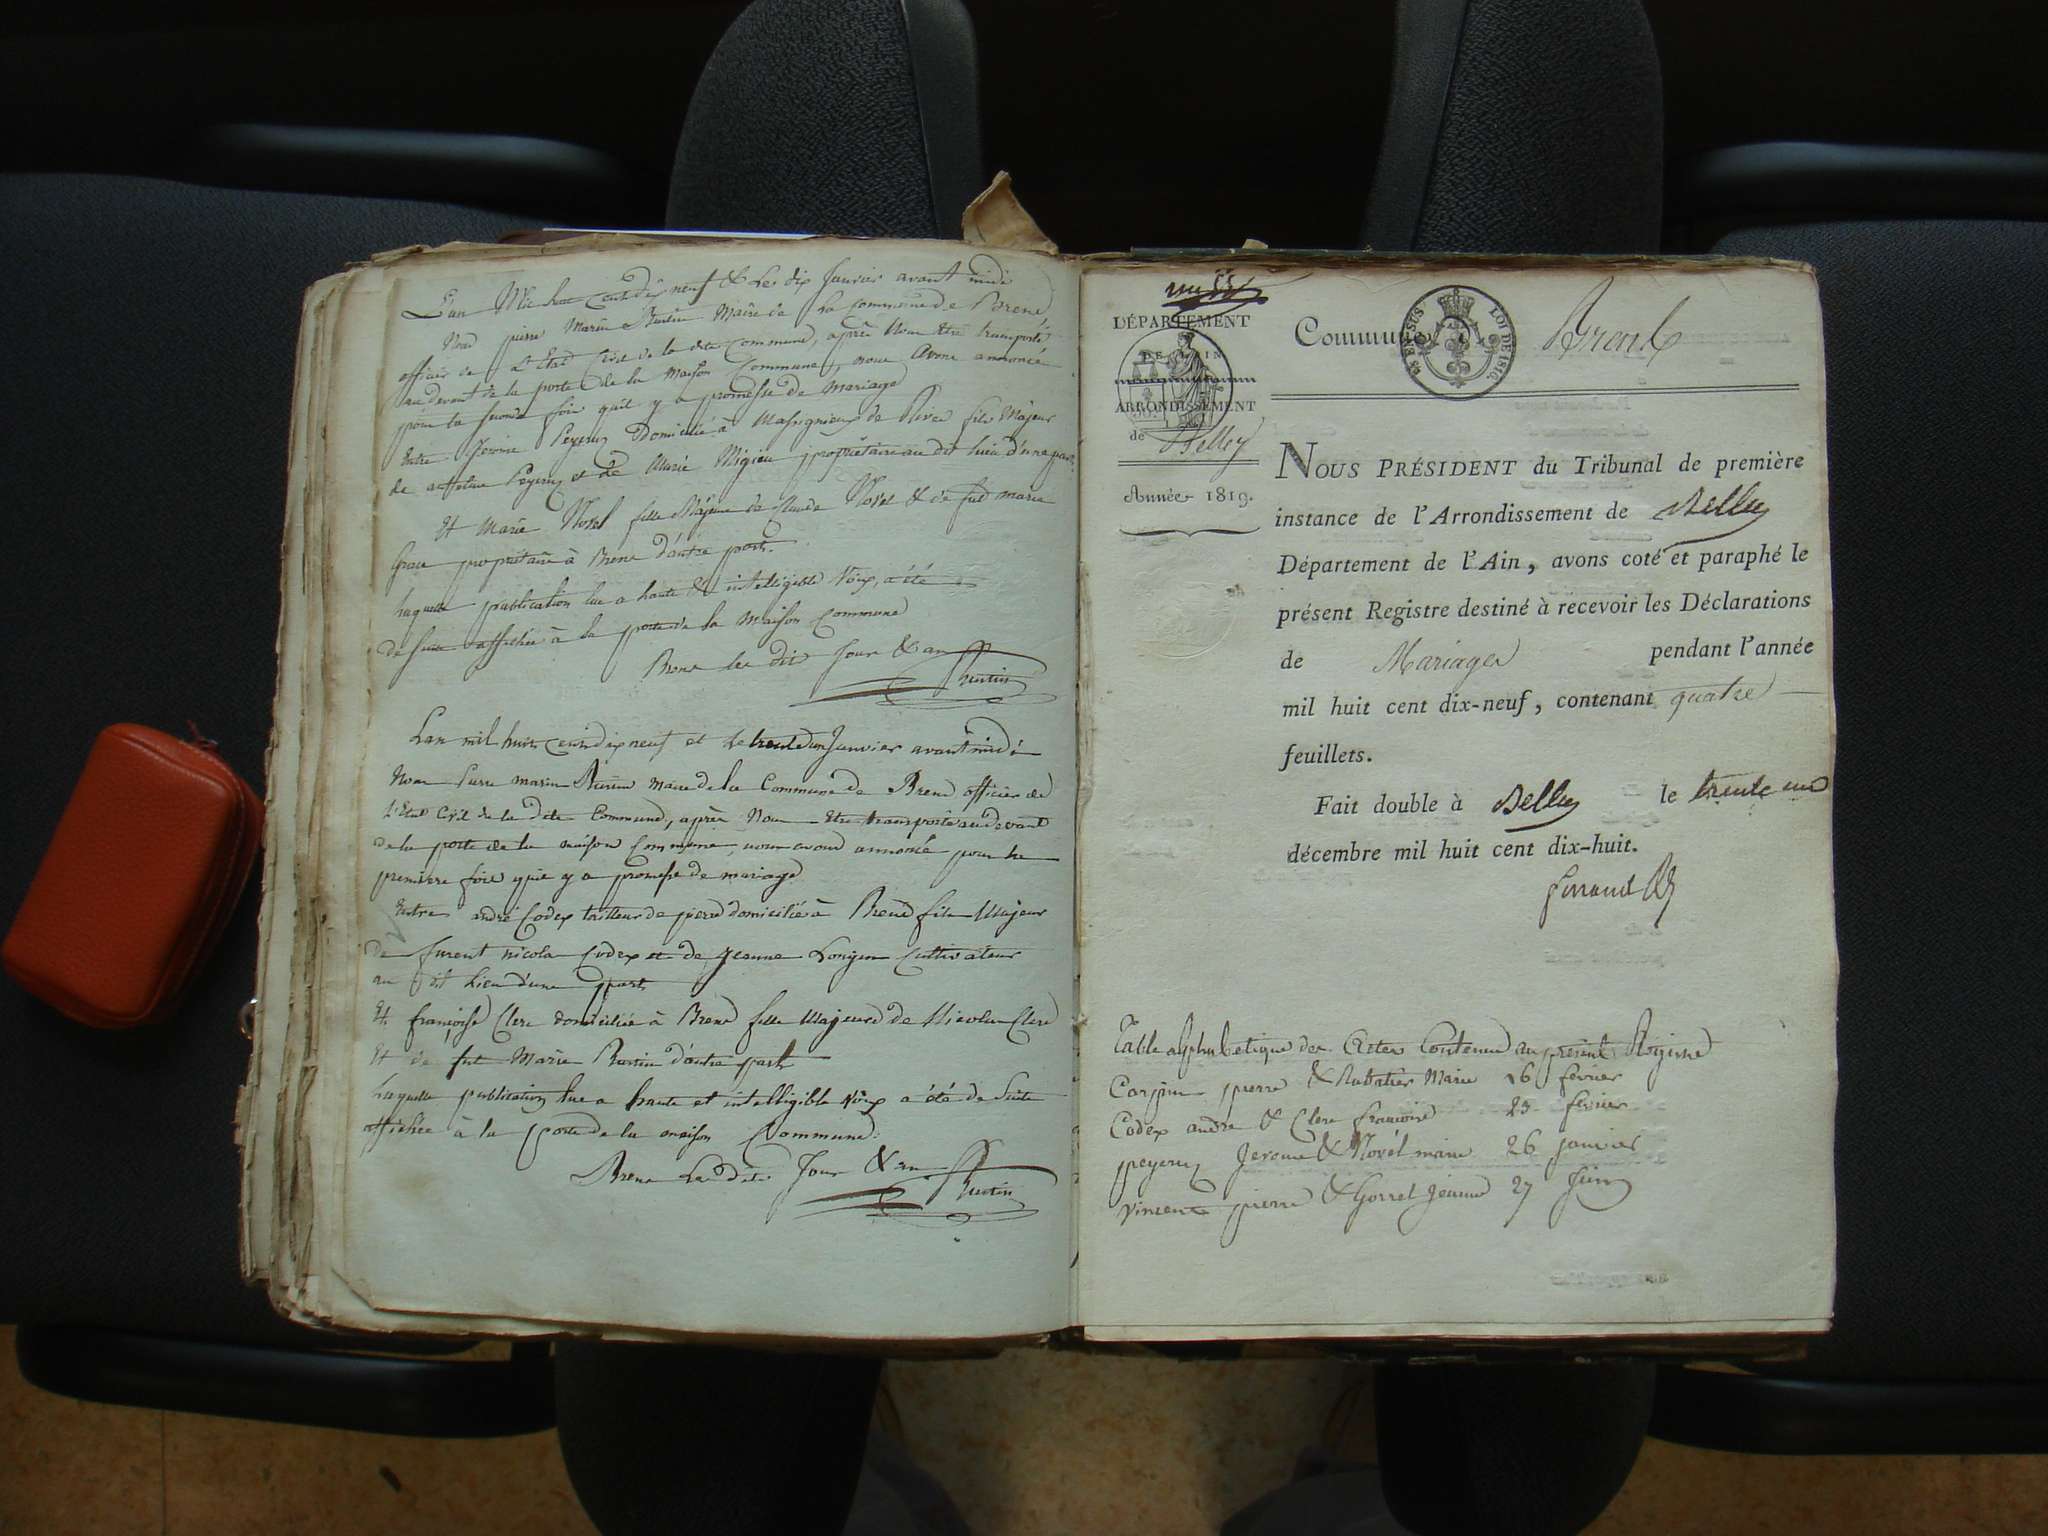 L'an Mil huit Cent dix neuf & Le dix Janvier avant midi
Nous pierre Marin Burtin Maire de la commune de Brens
officier de L'Etat Civil de la dite Commune, après Nous être transporté
au devant de la porte de la maison Commune, nous Avons annoncé
pour la seconde fois qu'il y a promesse de mariage
Entre Jerome Peyeruz Domicilié à Massignieux de Rives fils Majeur
de Peyeruz et de Marie Migieu propriétaire au dit lieu d'une part,
Et Marie Novel fille Majeure de Claude Novel & de fut marie
propriétaire à Brens d'autre part.
laquelle publication lue a haute & intelligible Voix, a été
de suite affichée à la porte de la Maison Commune
Brens les dit Jour & an Burtin
Lan mil huit Cent dix neuf et le trente un Janvier avant midi
Nous pierre marin Burtin maire de la Commune de Brens officier de
L'Etat Civil de la dite Commune, après Nous Etre transporté au devant
de la porte de la maison Commune, nous avons annoncé pour la
premiere fois qu'il y a promesse de mariage
Entre andré Codex tailleur de pierre domicilié à Brens fils Majeur
de furent nicolas Codex et de jeanne Longin Cultivateur
au dit Lieu d'une part
Et françoise Clerc domiciliée à Brens fille Majeure de Nicolas Clerc
Et de fut Marie Burtin d'autre part
laquelle publication lue a haute et intelligible Voix a été de Suite
affichée à la porte de la maison Commune.
Brens Les dits Jour & an Burtin
DÉPARTEMENT
DE L'AIN
ARRONDISSEMENT
de Belley
Année 1819.
Commune Brens
EN SUS
LOI DE 1816.
NOUS PRÉSIDENT du Tribunal de première
instance de l'Arrondissement de Belley
Département de l'Ain, avons coté et paraphé le
présent Registre destiné à recevoir les Déclarations
de Mariages pendant l'année
mil huit cent dix-neuf, contenant quatre
feuillets.
Fait double à Belley le trente un
décembre mil huit cent dix-huit.
Table alphabetique des Actes Contenus au present Registre
pierre & Rubatier Marie 16 fevrier
Codex andre & Clerc francoise 23 fevrier
peyeruz Jerome & Novel marie 26 janvier
Vincent pierre & Gorrel Jeanne 27 Juin